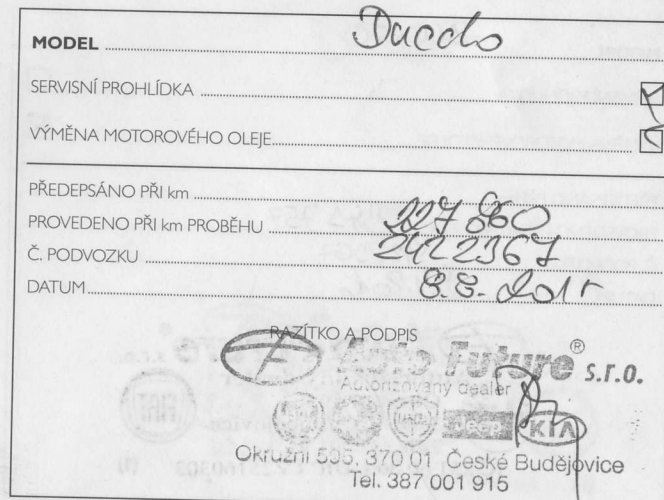 MODEL Ducato
SERVISNÍ PROHLÍDKA
VÝMĚNA MOTOROVÉHO OLEJE
PŘEDEPSÁNO PŘI km
PROVEDENO PŘI km PROBĚHU 227 860
Č. PODVOZKU 2422367
DATUM 8.8. 2015
RAZÍTKO A PODPIS
Auto Future® s.r.o.
Autorizovaný dealer
FIAT Jeep KIA
Okružní 595, 370 01 České Budějovice
Tel. 387 001 915